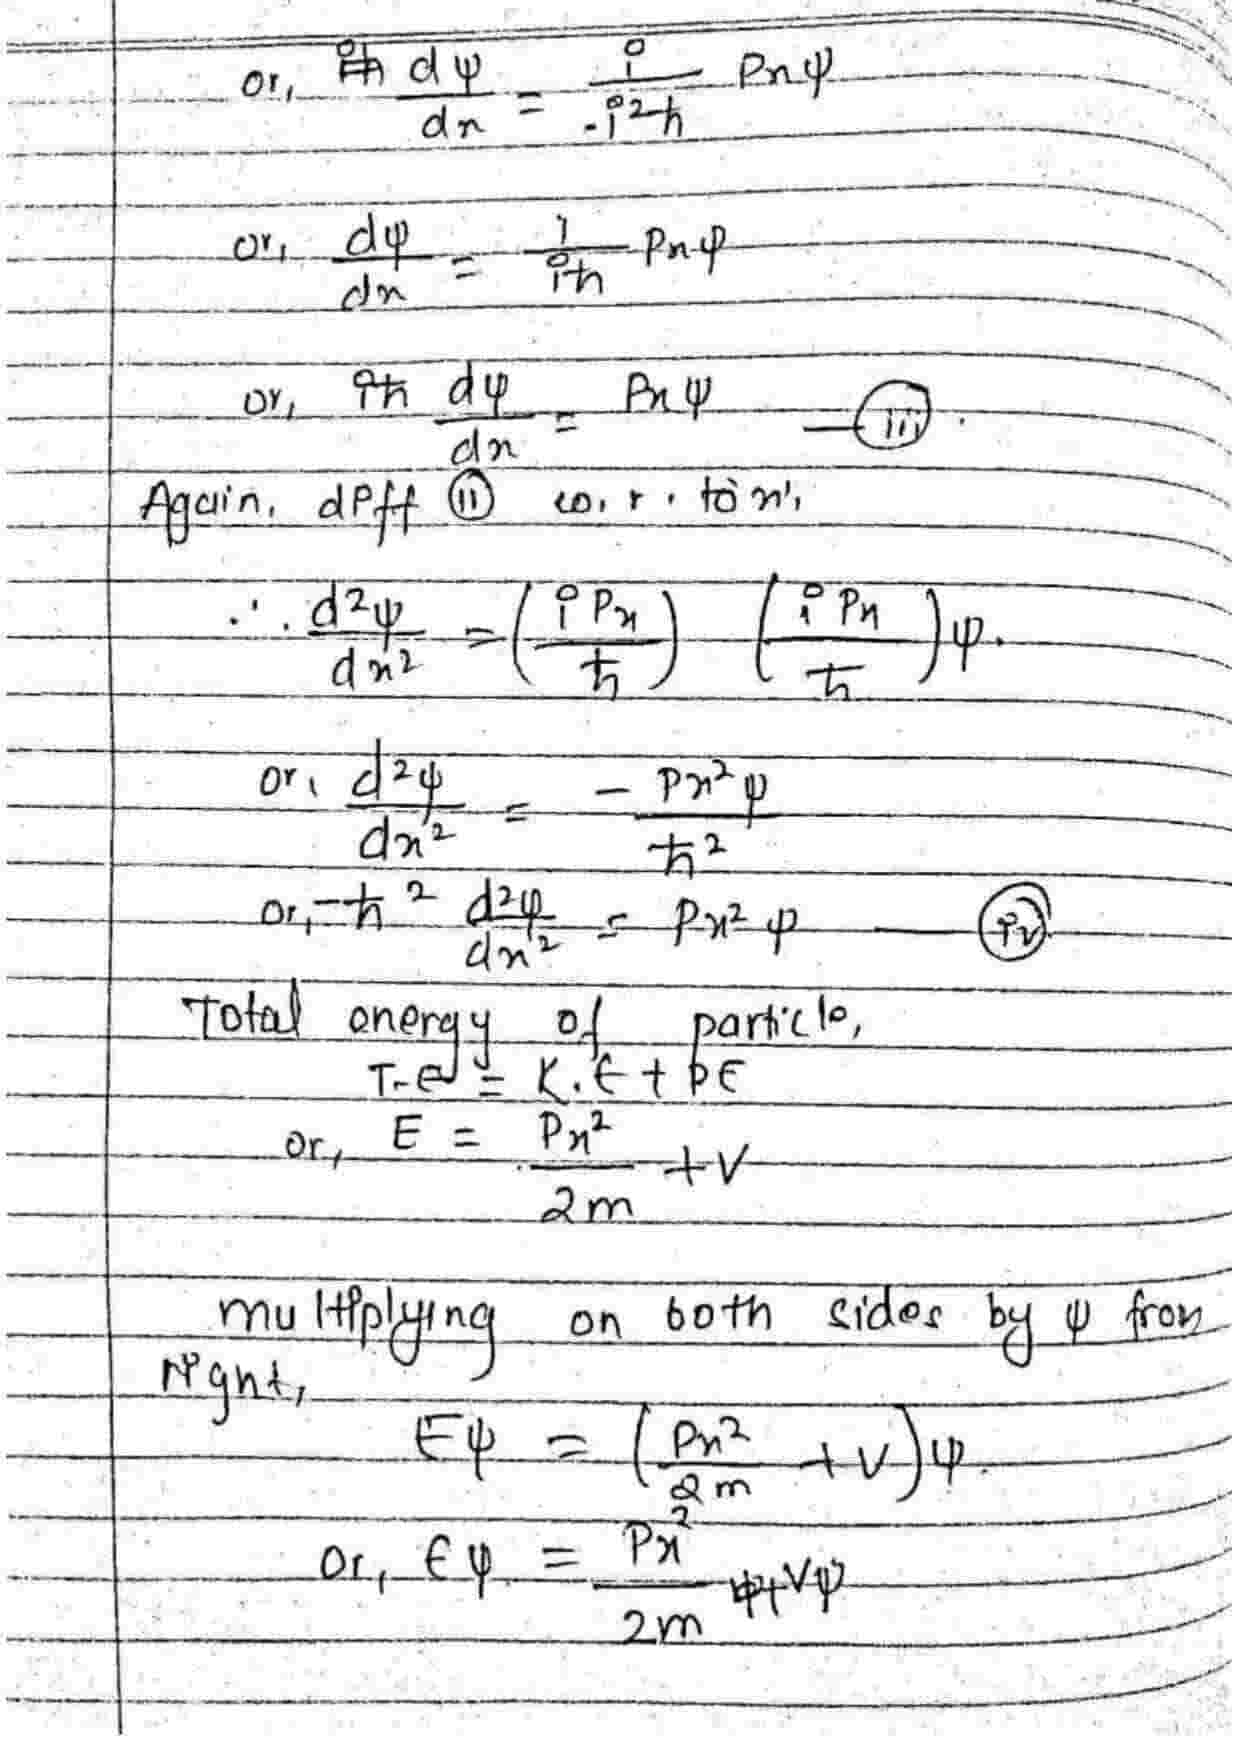 or, iħ dψ/dx = i/-i²ħ Pxψ
or, dψ/dx = 1/iħ Pxψ
or, iħ dψ/dx = Pxψ — (iii).
Again, diff (ii) w.r.to 'x',
∴ d²ψ/dx² = (i Px/ħ) (i Px/ħ)ψ.
or, d²ψ/dx² = - Px²ψ/ħ²
or, -ħ² d²ψ/dx² = Px²ψ — (iv)
Total energy of particle,
T.E = K.E + PE
or, E = Px²/2m + V
multiplying on both sides by ψ from
right,
Eψ = (Px²/2m + V)ψ.
or, Eψ = Px²/2m ψ+Vψ